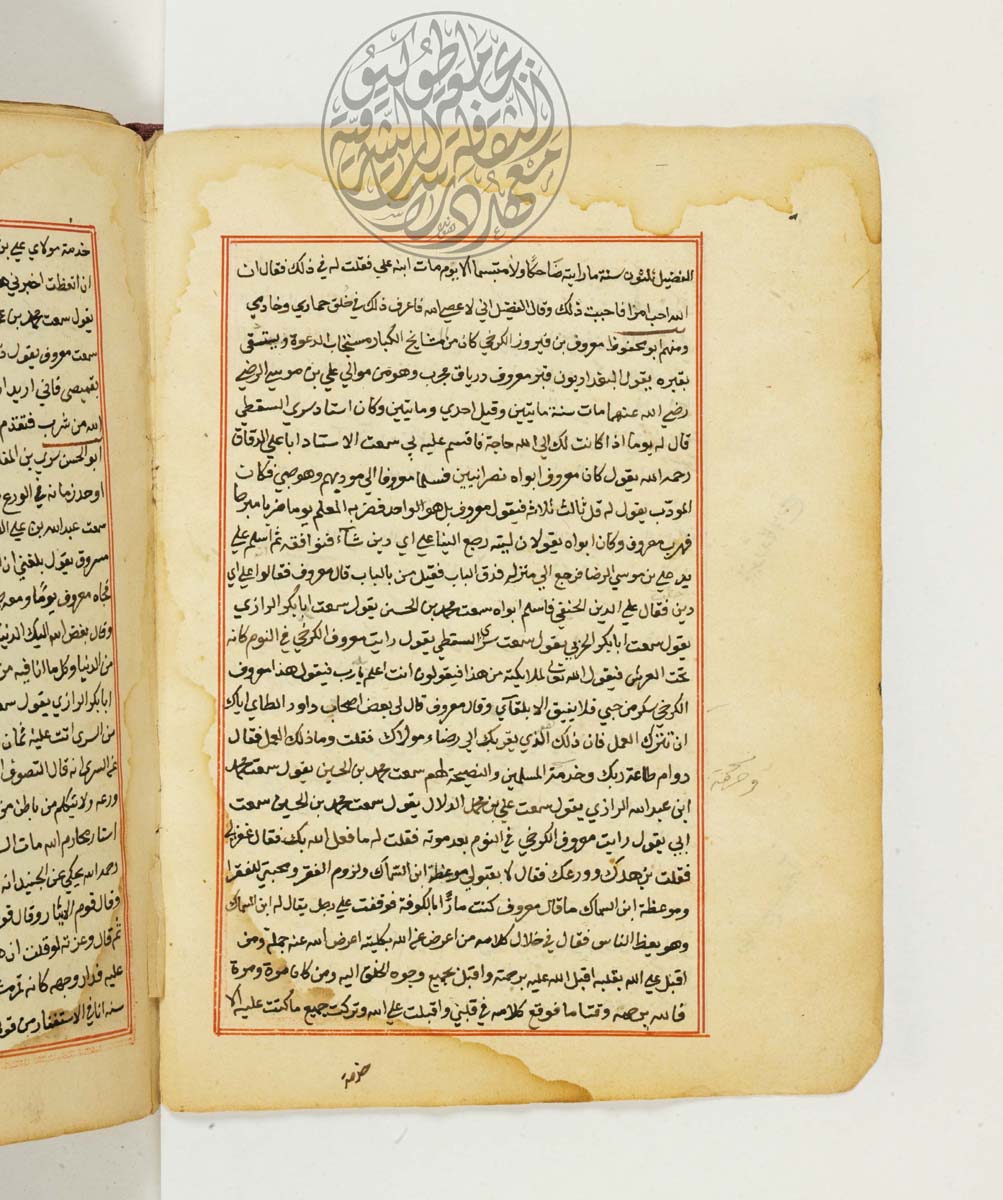 الفضيل ثلثون سنة ما رايته ضاحكا ولا متبسما الا يوم مات ابنه علي فقلت له في ذلك فقال ان
الله احب امرا فاحببت ذلك وقال الفضيل اني لاعصي الله فاعرف ذلك في خلق حماري وخادمي
ومنهم ابو محفوظ معروف بن فيروز الكرخي كان من مشايخ الكبار مستجاب الدعوة ويستسقى
بقبره يقول البغداديون قبر معروف درياق مجرب وهو من موالي علي بن موسى الرضي
رضي الله عنهما مات سنة مايتين وقيل احدي ومايتين وكان استاد سري السقطي
قال له يوما اذا كانت لك الي الله حاجة فاقسم عليه بي سمعت الاستاد ابا علي الدقاق
رحمه الله يقول كان معروف ابواه نصرانيين فسلما معروفا الي موديهم وهو صبي فكان
المودب يقول له قل ثالث ثلاثة فيقول معروف بل هو الواحد فضربه المعلم يوما ضربا مبرحا
فهرب معروف وكان ابواه يقولان ليته رجع الينا علي اي دين شآء فنوافقه ثم اسلم علي
يد علي بن موسي الرضا فرجع الي منزله فدق الباب فقيل من بالباب قال معروف فقالوا علي اي
دين فقال علي الدين الحنفي فاسلم ابواه سمعت محمد بن الحسن يقول سمعت ابا بكر الرازي
يقول سمعت ابا بكر الحربي يقول سمعت سري السقطي يقول رايت معروف الكرخي في النوم كانه
تحت العرش فيقول الله تعالى لملايكته من هذا فيقولون انت اعلم يا رب فيقول هذا معروف
الكرخي سكر من حبي فلا يفيق الا بلقآي وقال معروف قال لي بعض اصحاب داود الطاي اياك
ان تترك العمل فان ذلك الذي يقربك الي رضاء مولاك فقلت وما ذلك العمل فقال
دوام طاعة ربك وخدمة المسلمين والنصيحة لهم سمعت محمد بن الحسين يقول سمعت محمد
ابن عبد الله الرازي يقول سمعت علي بن محمد الدلال يقول سمعت محمد بن الحسين سمعت
ابي يقول رايت معروف الكرخي في النوم بعد موته فقلت له ما فعل الله بك فقال غفر لي
فقلت بزهدك وورعك فقال لا بقبولي موعظة ابن السماك ولزوم الفقر ومحبتي للفقرا
وموعظة ابن السماك ما قال معروف كنت مارًّا بالكوفة فوقفت علي رجل يقال له ابن السماك
وهو يعظ الناس فقال في خلال كلامه من اعرض عن الله بكليته اعرض الله عنه جملة ومن
اقبل علي الله بقلبه اقبل الله عليه برحمته واقبل بجميع وجوه الخلق اليه ومن كان مرة ومرة
فالله يرحمه وقتا ما فوقع كلامه في قلبي واقبلت علي الله وتركت جميع ما كنت عليه الا
خدمة
خدمة مولاي علي بن
ان اتعظت اخبرني
يقول سمعت محمد بن
سمعت معروف يقول
بقميصي فاني اريد
الله من شرب فتقدم
ابو الحسن سري بن
اوحد زمانه في الورع
سمعت عبد الله بن علي
مسروق يقول بلغني ان
معروف يوما ومعه
وقال بغض الله اليك الدنيا
من الدنيا وكل ما انا فيه من
ابا بكر الرازي يقول
من السري اتت عليه ثمان
عن السري انه قال التصوف
ورعه ولا يتكلم من باطن
استار محارم الله مات
رحمه الله يحكي عن الجنيد انه
وقال قوم الايثار وقال
ثم قال وعزته لو قلت ان
عليه فدار وجهه كانه
سنة انا في الاستغفار من